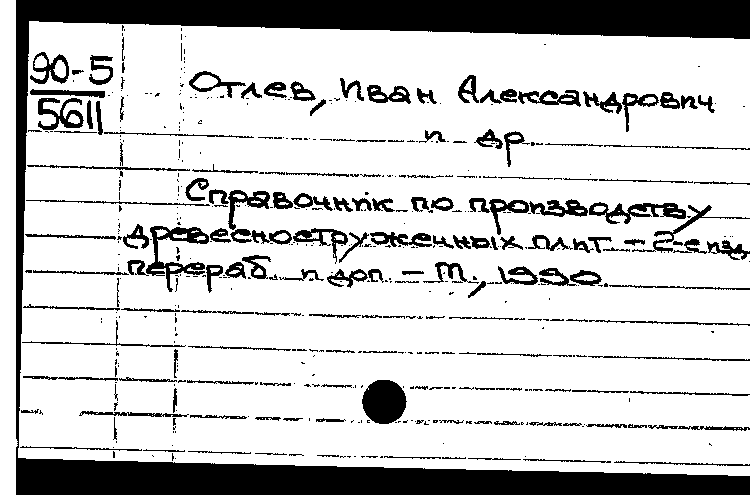 90-5
5611
Отлев, Иван Александрович
и др.
Справочник по производству
древесностружечных плит – 2-е изд.
перераб. и доп. – М., 1990.